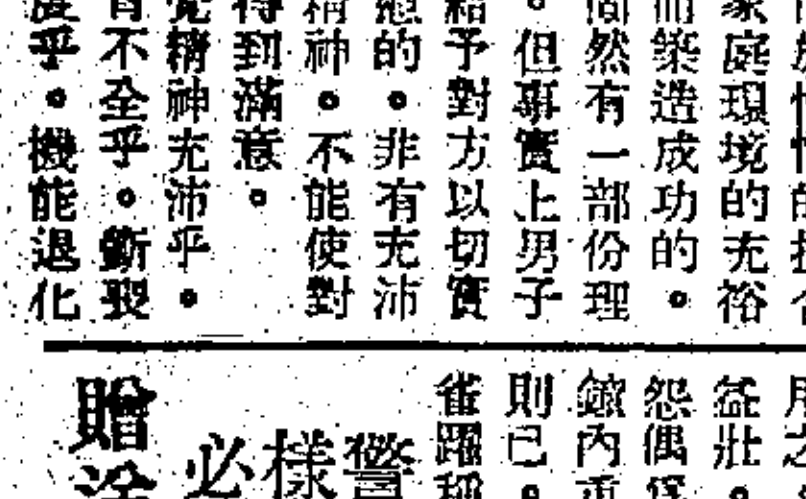 家庭環境的充裕
而築造成功的。
然有一部份理
。但事實上男子
給予對方以切實
慰的。非有充沛
精神。不能使對
得到滿意。
覺精神充沛乎。
有不全乎。
度乎。機能退化
用之
益壯。
怨偶
內重
則已。
雀躍稱
警
樣
必
贈